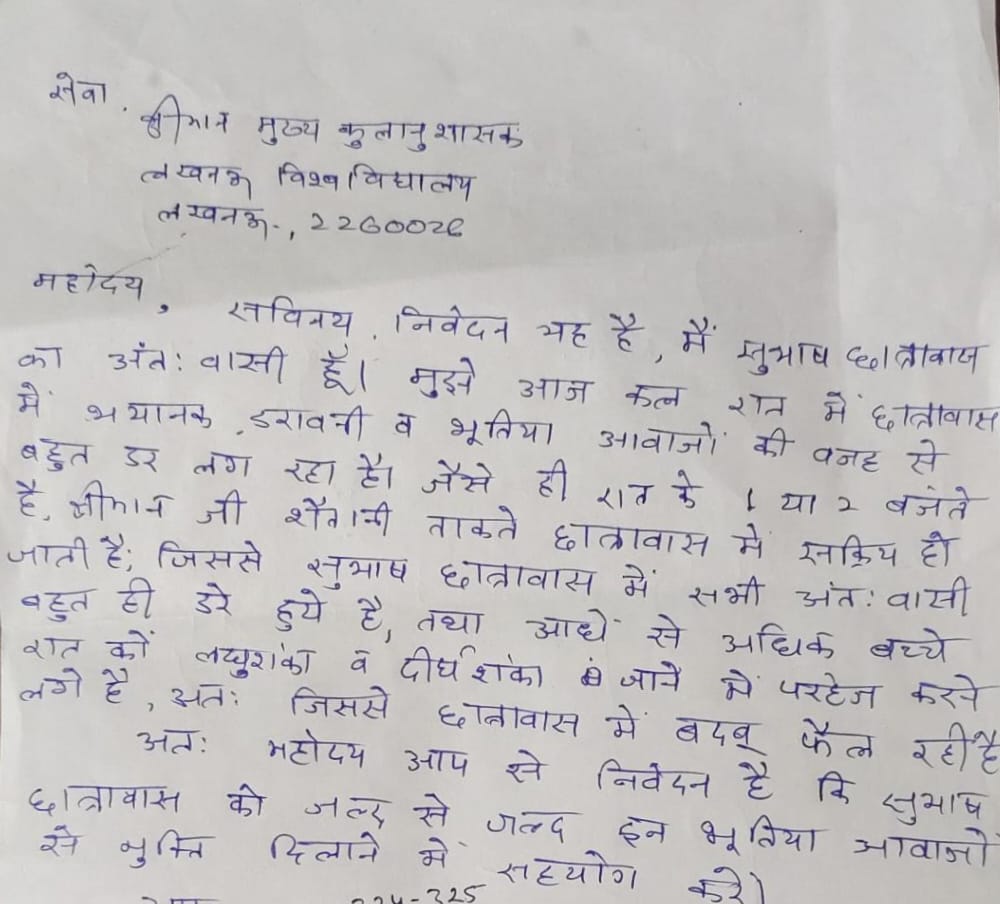 सेवा,
श्रीमान मुख्य कुलानुशासक
लखनऊ विश्वविद्यालय
लखनऊ, 226002
महोदय,
सविनय, निवेदन यह है, मैं सुभाष छात्रावास
का अंत: वासी हूँ। मुझे आज कल रात में छात्रावास
में भयानक, डरावनी व भूतिया आवाजों की वजह से
बहुत डर लग रहा है। जैसे ही रात के 1 या 2 बजते
है, श्रीमान जी शैतानी ताकते छात्रावास में सक्रिय हो
जाती है; जिससे सुभाष छात्रावास में सभी अंत: वासी
बहुत ही डरे हुये है, तथा आधे से अधिक बच्चे
रात को लघुशंका व दीर्घशंका जाने में परहेज करने
लगे है, अत: जिससे छात्रावास में बदबू फैल रही है
अत: महोदय आप से निवेदन है कि सुभाष
छात्रावास को जल्द से जल्द इन भूतिया आवाजों
से मुक्ति दिलाने में सहयोग करे।